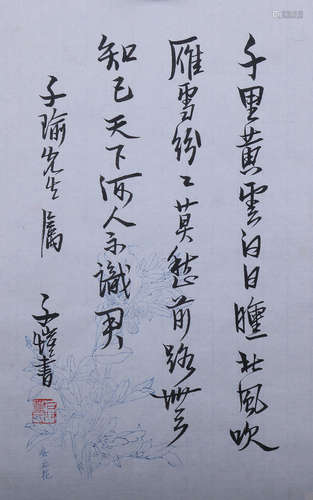 千里黄雲白日曛北风吹
雁雪紛〻莫愁前路无
知己天下何人不識君
子瑜先生属
子愷書